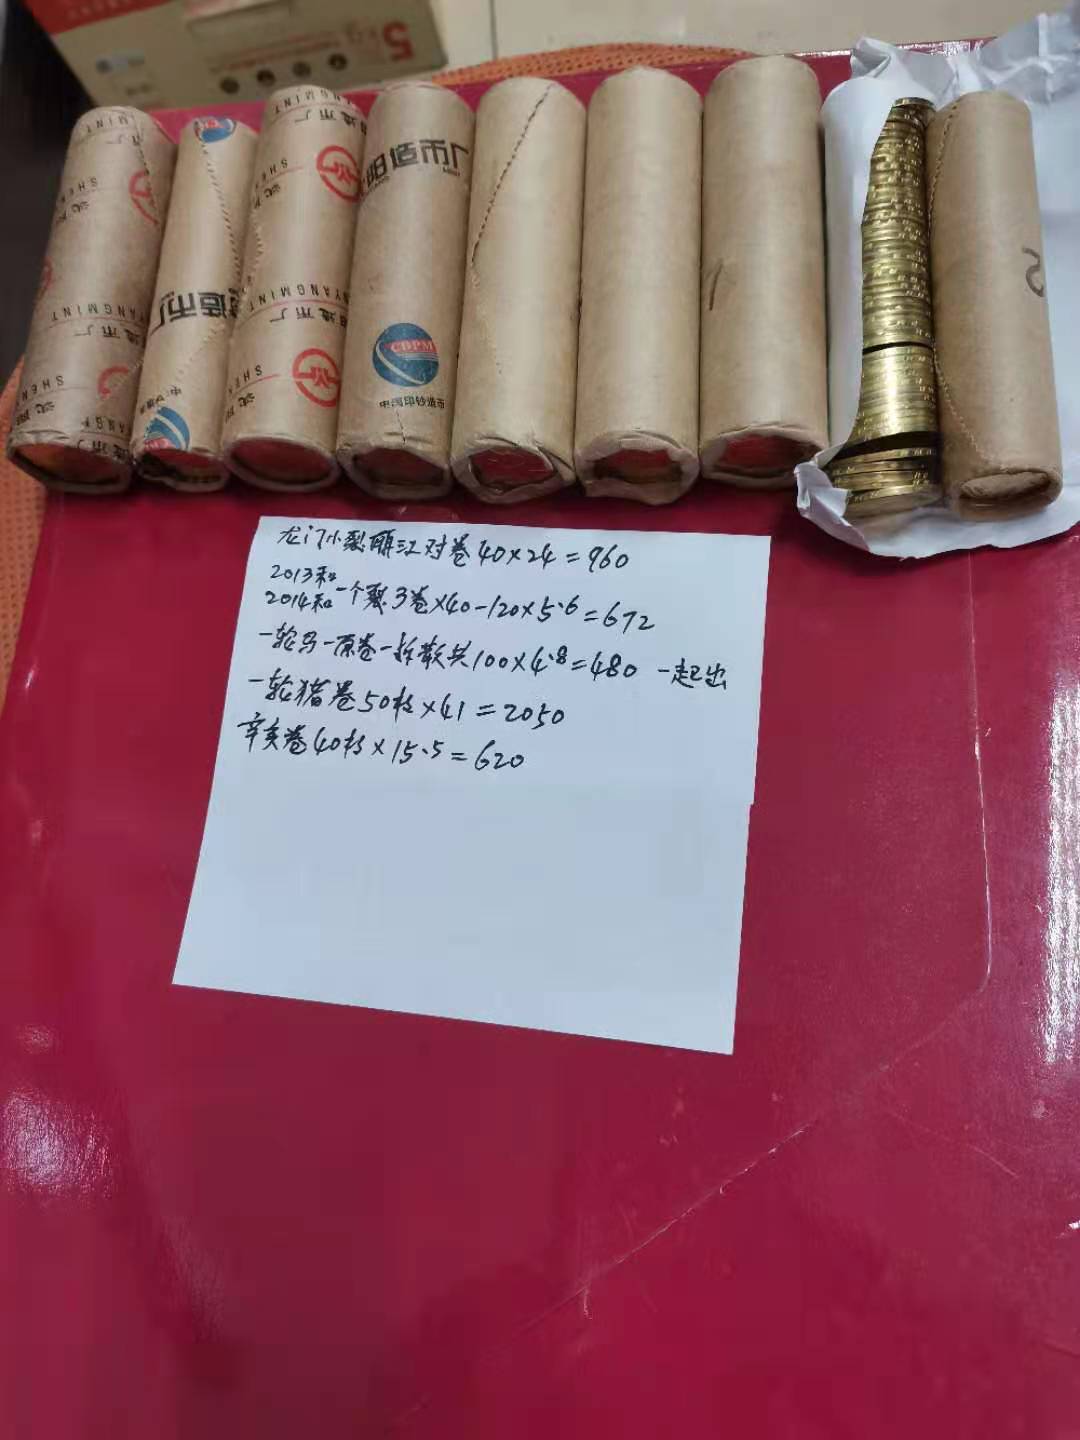 5
MINT
币厂
SHEN
沈阳
YANGMINT
造币厂
SHEN
造币厂
YANGMINT
造币厂
阳造币厂
CBPM
中国印钞造币
龙门小裂丽江对卷40×24=960
2013和
2014和一个裂3卷×40-120×5.6=672
一轮马一原卷一拆散共100×4.8=480 一起出
一轮猪卷50枚×41=2050
辛亥卷40枚×15.5=620